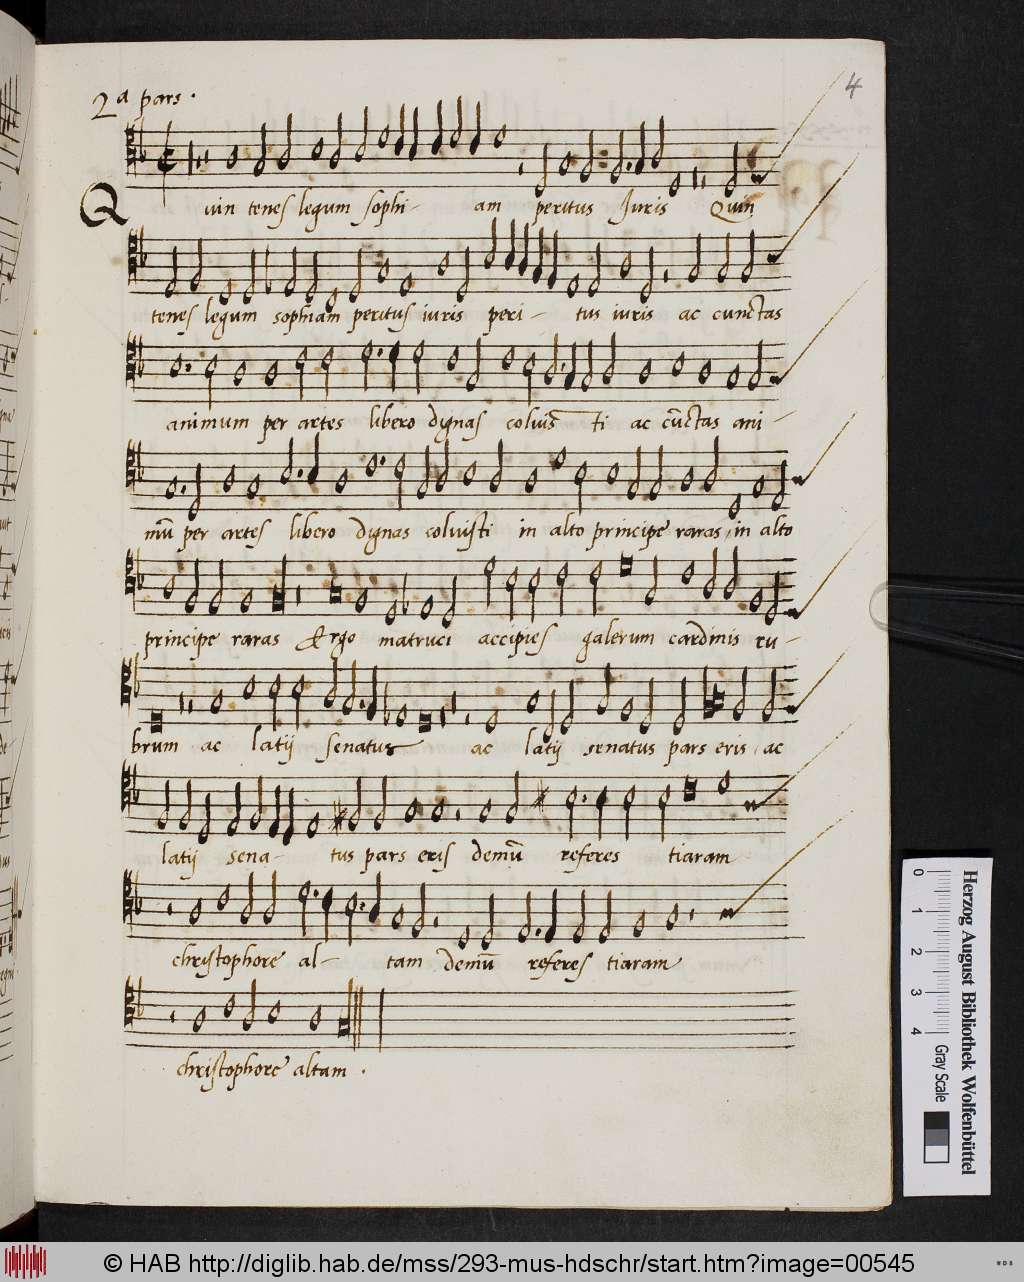 4
2ª pars.
Quin tenes legum sophi- am peritus Iuris Quin
tenes legum sophiam peritus iuris peri- tus iuris ac cunctas
animum per artes libero dignas coluis- ti ac cūctas ani-
mū per artes libero dignas coluisti in alto principe raras in alto
principe raras Ergo matruci accipies galerum cardinis ru-
brum ac latij senatus ac latij senatus pars eris ac
latij sena- tus pars eris demū referes tiaram
christophore al- tam demū referes tiaram
christophore altam.
0 1 2 3 4
Gray Scale
Herzog August Bibliothek Wolfenbüttel
© HAB http://diglib.hab.de/mss/293-mus-hdschr/start.htm?image=00545